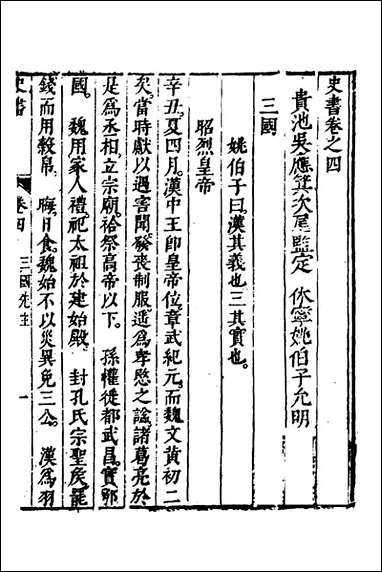 史書卷之四
貴池吳應箕次尾監定　休寧姚伯子允明
三國
姚伯子曰。漢其義也。三其實也。
昭烈皇帝
辛丑。夏四月。漢中王即皇帝位。章武紀元。而魏文黃初二
矣。當時獻以遇害聞。發喪制服。遥爲孝愍之謚。諸葛亮於
是爲丞相。立宗廟。祫祭高帝以下。　孫權徙都武昌。實鄂
國。　魏用家人禮。祀太祖於建始殿。　封孔氏宗聖矦。罷
錢而用穀帛。　晦日食。魏始不以災異免三公。　漢爲羽
史書
卷四
三國先主
一